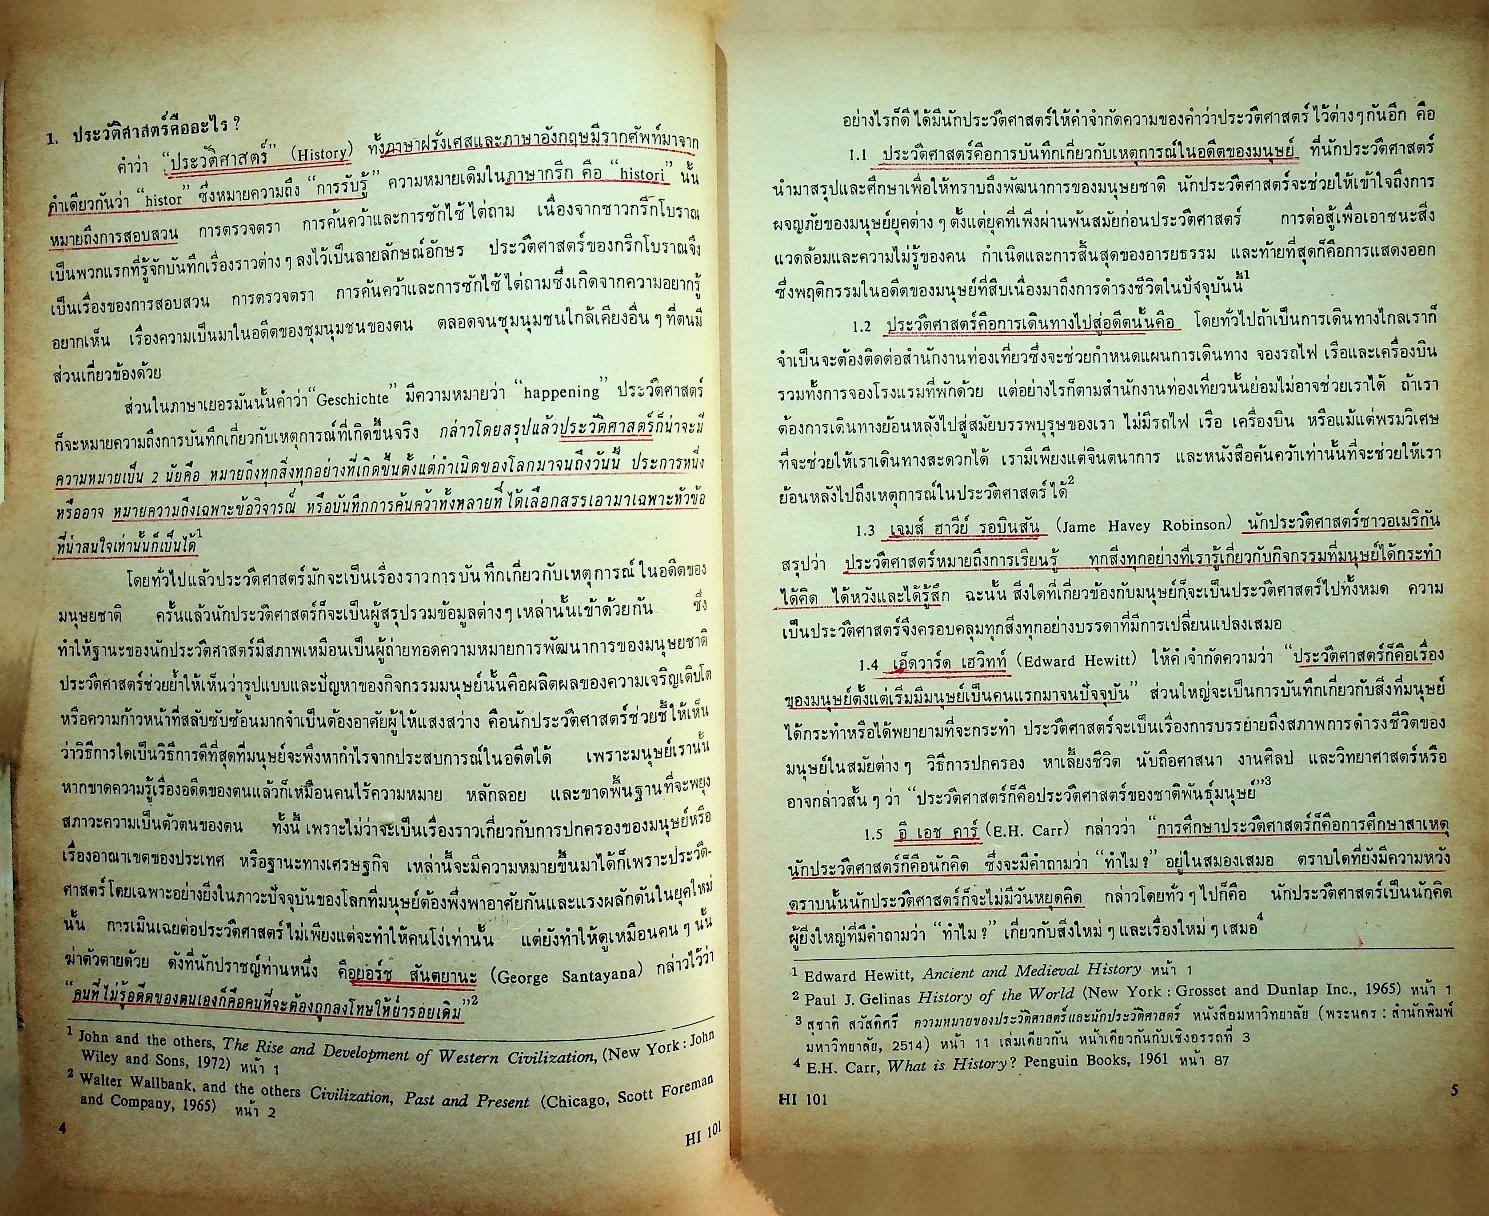 1. ประวัติศาสตร์คืออะไร ?
คำว่า “ประวัติศาสตร์” (History) ทั้งภาษาฝรั่งเศสและภาษาอังกฤษมีรากศัพท์มาจาก
คำเดียวกันว่า “histor” ซึ่งหมายความถึง “การรับรู้” ความหมายเดิมในภาษากรีก คือ “histori” นั้น
หมายถึงการสอบสวน การตรวจตรา การค้นคว้าและการซักไซ้ไต่ถาม เนื่องจากชาวกรีกโบราณ
เป็นพวกแรกที่รู้จักบันทึกเรื่องราวต่าง ๆ ลงไว้เป็นลายลักษณ์อักษร ประวัติศาสตร์ของกรีกโบราณจึง
เป็นเรื่องของการสอบสวน การตรวจตรา การค้นคว้าและการซักไซ้ไต่ถามซึ่งเกิดจากความอยากรู้
อยากเห็น เรื่องความเป็นมาในอดีตของชุมนุมชนของตน ตลอดจนชุมนุมชนใกล้เคียงอื่น ๆ ที่ตนมี
ส่วนเกี่ยวข้องด้วย
ส่วนในภาษาเยอรมันนั้นคำว่า“Geschichte” มีความหมายว่า “happening” ประวัติศาสตร์
ก็จะหมายความถึงการบันทึกเกี่ยวกับเหตุการณ์ที่เกิดขึ้นจริง กล่าวโดยสรุปแล้วประวัติศาสตร์ก็น่าจะมี
ความหมายเป็น 2 นัยคือ หมายถึงทุกสิ่งทุกอย่างที่เกิดขึ้นตั้งแต่กำเนิดของโลกมาจนถึงวันนี้ ประการหนึ่ง
หรืออาจ หมายความถึงเฉพาะข้อวิจารณ์ หรือบันทึกการค้นคว้าทั้งหลายที่ได้เลือกสรรเอามาเฉพาะหัวข้อ
ที่น่าสนใจเท่านั้นก็เป็นได้1
โดยทั่วไปแล้วประวัติศาสตร์มักจะเป็นเรื่องราวการบันทึกเกี่ยวกับเหตุการณ์ในอดีตของ
มนุษยชาติ ครั้นแล้วนักประวัติศาสตร์ก็จะเป็นผู้สรุปรวมข้อมูลต่างๆ เหล่านั้นเข้าด้วยกัน ซึ่ง
ทำให้ฐานะของนักประวัติศาสตร์มีสภาพเหมือนเป็นผู้ถ่ายทอดความหมายการพัฒนาการของมนุษยชาติ
ประวัติศาสตร์ช่วยย้ำให้เห็นว่ารูปแบบและปัญหาของกิจกรรมมนุษย์นั้นคือผลิตผลของความเจริญเติบโต
หรือความก้าวหน้าที่สลับซับซ้อนมากจำเป็นต้องอาศัยผู้ให้แสงสว่าง คือนักประวัติศาสตร์ช่วยชี้ให้เห็น
ว่าวิธีการใดเป็นวิธีการดีที่สุดที่มนุษย์จะพึงหากำไรจากประสบการณ์ในอดีตได้ เพราะมนุษย์เรานั้น
หากขาดความรู้เรื่องอดีตของตนแล้วก็เหมือนคนไร้ความหมาย หลักลอย และขาดพื้นฐานที่จะพยุง
สภาวะความเป็นตัวตนของตน ทั้งนี้ เพราะไม่ว่าจะเป็นเรื่องราวเกี่ยวกับการปกครองของมนุษย์หรือ
เรื่องอาณาเขตของประเทศ หรือฐานะทางเศรษฐกิจ เหล่านี้จะมีความหมายขึ้นมาได้ก็เพราะประวัติ-
ศาสตร์โดยเฉพาะอย่างยิ่งในภาวะปัจจุบันของโลกที่มนุษย์ต้องพึ่งพาอาศัยกันและแรงผลักดันในยุคใหม่
นั้น การเมินเฉยต่อประวัติศาสตร์ไม่เพียงแต่จะทำให้คนโง่เท่านั้น แต่ยังทำให้ดูเหมือนคน ๆ นั้น
ฆ่าตัวตายด้วย ดังที่นักปราชญ์ท่านหนึ่ง คือยอร์ช สันตยานะ (George Santayana) กล่าวไว้ว่า
“คนที่ไม่รู้อดีตของตนเองก็คือคนที่จะต้องถูกลงโทษให้ย่ำรอยเดิม”2
1 John and the others, The Rise and Development of Western Civilization, (New York : John
Wiley and Sons, 1972) หน้า 1
2 Walter Wallbank, and the others Civilization, Past and Present (Chicago, Scott Foreman
and Company, 1965) หน้า 2
4
HI 101
อย่างไรก็ดี ได้มีนักประวัติศาสตร์ให้คำจำกัดความของคำว่าประวัติศาสตร์ ไว้ต่างๆกันอีก คือ
1.1 ประวัติศาสตร์คือการบันทึกเกี่ยวกับเหตุการณ์ในอดีตของมนุษย์ ที่นักประวัติศาสตร์
นำมาสรุปและศึกษาเพื่อให้ทราบถึงพัฒนาการของมนุษยชาติ นักประวัติศาสตร์จะช่วยให้เข้าใจถึงการ
ผจญภัยของมนุษย์ยุคต่าง ๆ ตั้งแต่ยุคที่เพิ่งผ่านพ้นสมัยก่อนประวัติศาสตร์ การต่อสู้เพื่อเอาชนะสิ่ง
แวดล้อมและความไม่รู้ของคน กำเนิดและการสิ้นสุดของอารยธรรม และท้ายที่สุดก็คือการแสดงออก
ซึ่งพฤติกรรมในอดีตของมนุษย์ที่สืบเนื่องมาถึงการดำรงชีวิตในปัจจุบันนี้1
1.2 ประวัติศาสตร์คือการเดินทางไปสู่อดีตนั้นคือ โดยทั่วไปถ้าเป็นการเดินทางไกลเราก็
จำเป็นจะต้องติดต่อสำนักงานท่องเที่ยวซึ่งจะช่วยกำหนดแผนการเดินทาง จองรถไฟ เรือและเครื่องบิน
รวมทั้งการจองโรงแรมที่พักด้วย แต่อย่างไรก็ตามสำนักงานท่องเที่ยวนั้นย่อมไม่อาจช่วยเราได้ ถ้าเรา
ต้องการเดินทางย้อนหลังไปสู่สมัยบรรพบุรุษของเรา ไม่มีรถไฟ เรือ เครื่องบิน หรือแม้แต่พรมวิเศษ
ที่จะช่วยให้เราเดินทางสะดวกได้ เรามีเพียงแต่จินตนาการ และหนังสือค้นคว้าเท่านั้นที่จะช่วยให้เรา
ย้อนหลังไปถึงเหตุการณ์ในประวัติศาสตร์ได้2
1.3 เจมส์ ฮาวีย์ รอบินสัน (Jame Havey Robinson) นักประวัติศาสตร์ชาวอเมริกัน
สรุปว่า ประวัติศาสตร์หมายถึงการเรียนรู้ ทุกสิ่งทุกอย่างที่เรารู้เกี่ยวกับกิจกรรมที่มนุษย์ได้กระทำ
ได้คิด ได้หวังและได้รู้สึก ฉะนั้น สิ่งใดที่เกี่ยวข้องกับมนุษย์ก็จะเป็นประวัติศาสตร์ไปทั้งหมด ความ
เป็นประวัติศาสตร์จึงครอบคลุมทุกสิ่งทุกอย่างบรรดาที่มีการเปลี่ยนแปลงเสมอ
1.4 เอ็ดวาร์ด เฮวิทท์ (Edward Hewitt) ให้คำจำกัดความว่า “ประวัติศาสตร์ก็คือเรื่อง
ของมนุษย์ตั้งแต่เริ่มมีมนุษย์เป็นคนแรกมาจนปัจจุบัน” ส่วนใหญ่จะเป็นการบันทึกเกี่ยวกับสิ่งที่มนุษย์
ได้กระทำหรือได้พยายามที่จะกระทำ ประวัติศาสตร์จะเป็นเรื่องการบรรยายถึงสภาพการดำรงชีวิตของ
มนุษย์ในสมัยต่าง ๆ วิธีการปกครอง หาเลี้ยงชีวิต นับถือศาสนา งานศิลป์ และวิทยาศาสตร์หรือ
อาจกล่าวสั้น ๆ ว่า “ประวัติศาสตร์ก็คือประวัติศาสตร์ของชาติพันธุ์มนุษย์”3
1.5 อี เอช คาร์ (E.H. Carr) กล่าวว่า “การศึกษาประวัติศาสตร์ก็คือการศึกษาสาเหตุ
นักประวัติศาสตร์ก็คือนักคิด ซึ่งจะมีคำถามว่า “ทำไม ?” อยู่ในสมองเสมอ ตราบใดที่ยังมีความหวัง
ตราบนั้นนักประวัติศาสตร์ก็จะไม่มีวันหยุดคิด กล่าวโดยทั่ว ๆ ไปก็คือ นักประวัติศาสตร์เป็นนักคิด
ผู้ยิ่งใหญ่ที่มีคำถามว่า “ทำไม ?” เกี่ยวกับสิ่งใหม่ ๆ และเรื่องใหม่ ๆ เสมอ4
1 Edward Hewitt, Ancient and Medieval History หน้า 1
2 Paul J. Gelinas History of the World (New York : Grosset and Dunlap Inc., 1965) หน้า 1
3 สุชาติ สวัสดิ์ศรี ความหมายของประวัติศาสตร์และนักประวัติศาสตร์ หนังสือมหาวิทยาลัย (พระนคร : สำนักพิมพ์
มหาวิทยาลัย, 2514) หน้า 11 เล่มเดียวกัน หน้าเดียวกันกับเชิงอรรถที่ 3
4 E.H. Carr, What is History? Penguin Books, 1961 หน้า 87
HI 101
5